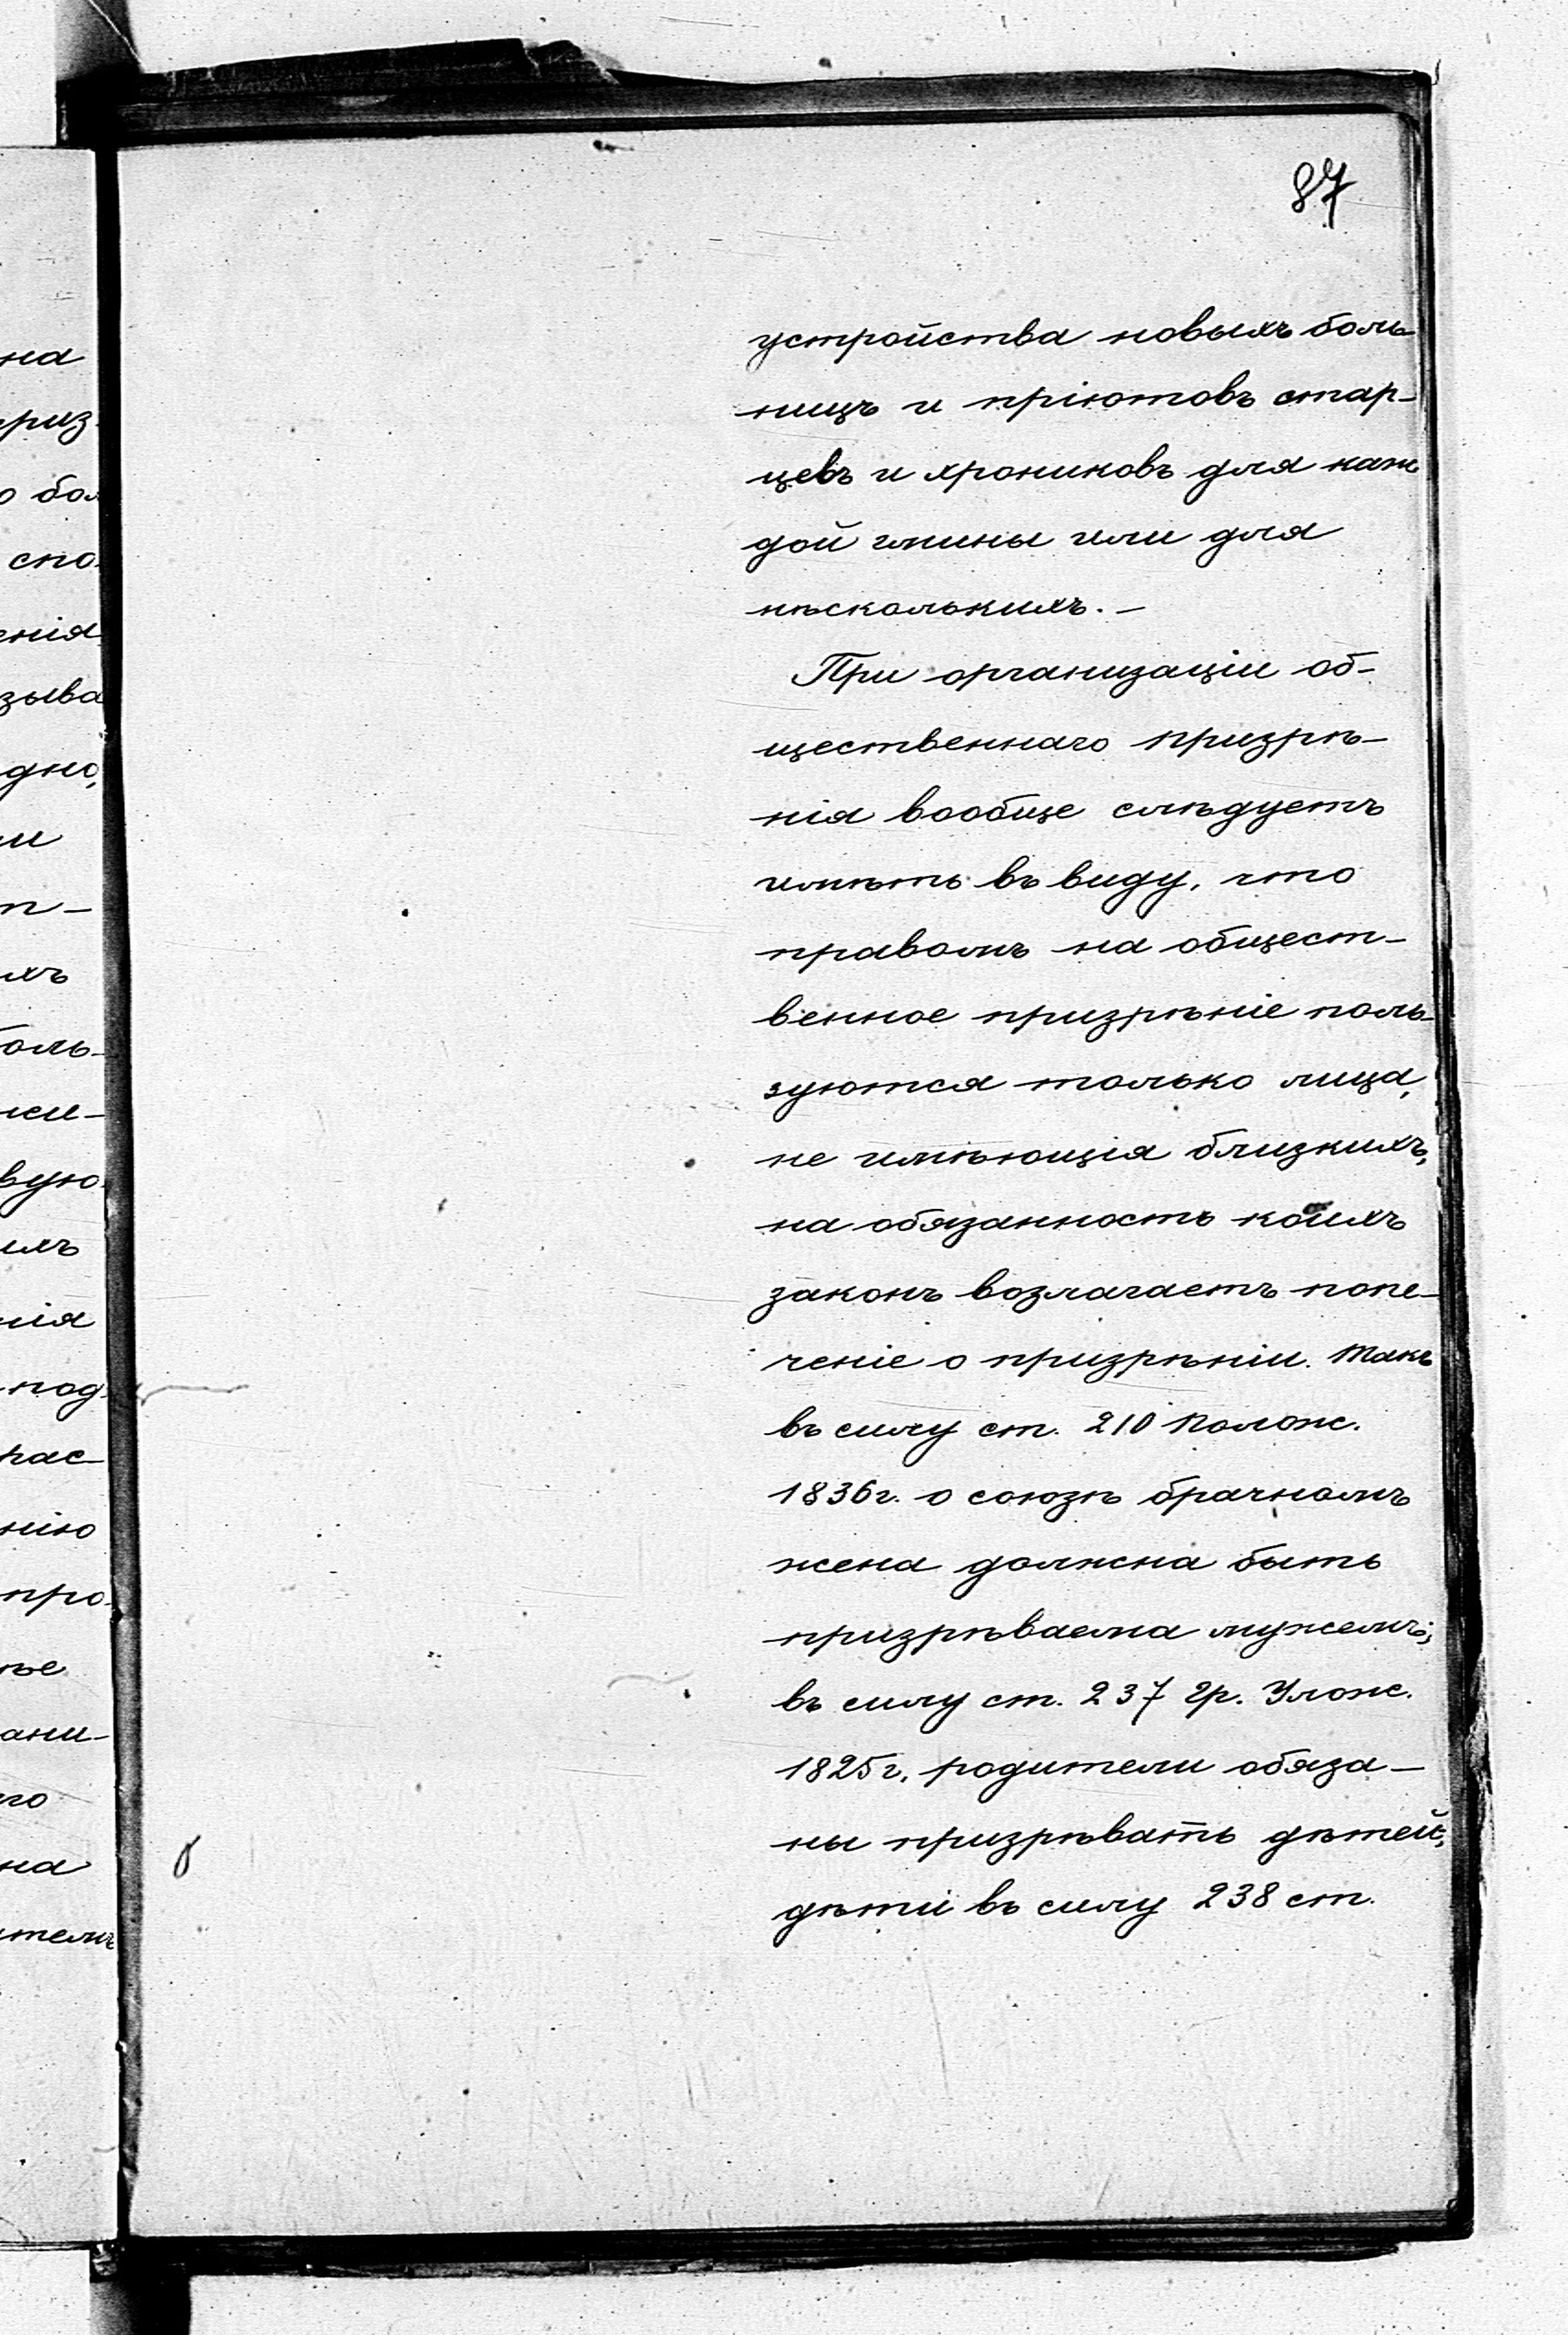 87
устройства новыхъ боль-
ницъ и пріютовъ стар-
цевъ и хрониковъ для каж
дой гмины или для
нѣсколькихъ. —
При организаціи об-
щественнаго призрѣ-
нія вообще слѣдуетъ
имѣть въ виду, что
правомъ на общест-
венное призрѣніе поль-
зуются только лица,
не имѣющія близкихъ,
на обязанность коихъ
законъ возлагаетъ попе-
ченіе о призрѣніи. Такъ
въ силу ст. 210 Полож.
1836г. о союзѣ брачномъ
жена должна быть
призрѣваема мужемъ;
въ силу ст. 237 Гр. Улож.
1825г. родители обяза-
ны призрѣвать дѣтей;
дѣти въ силу 238 ст.